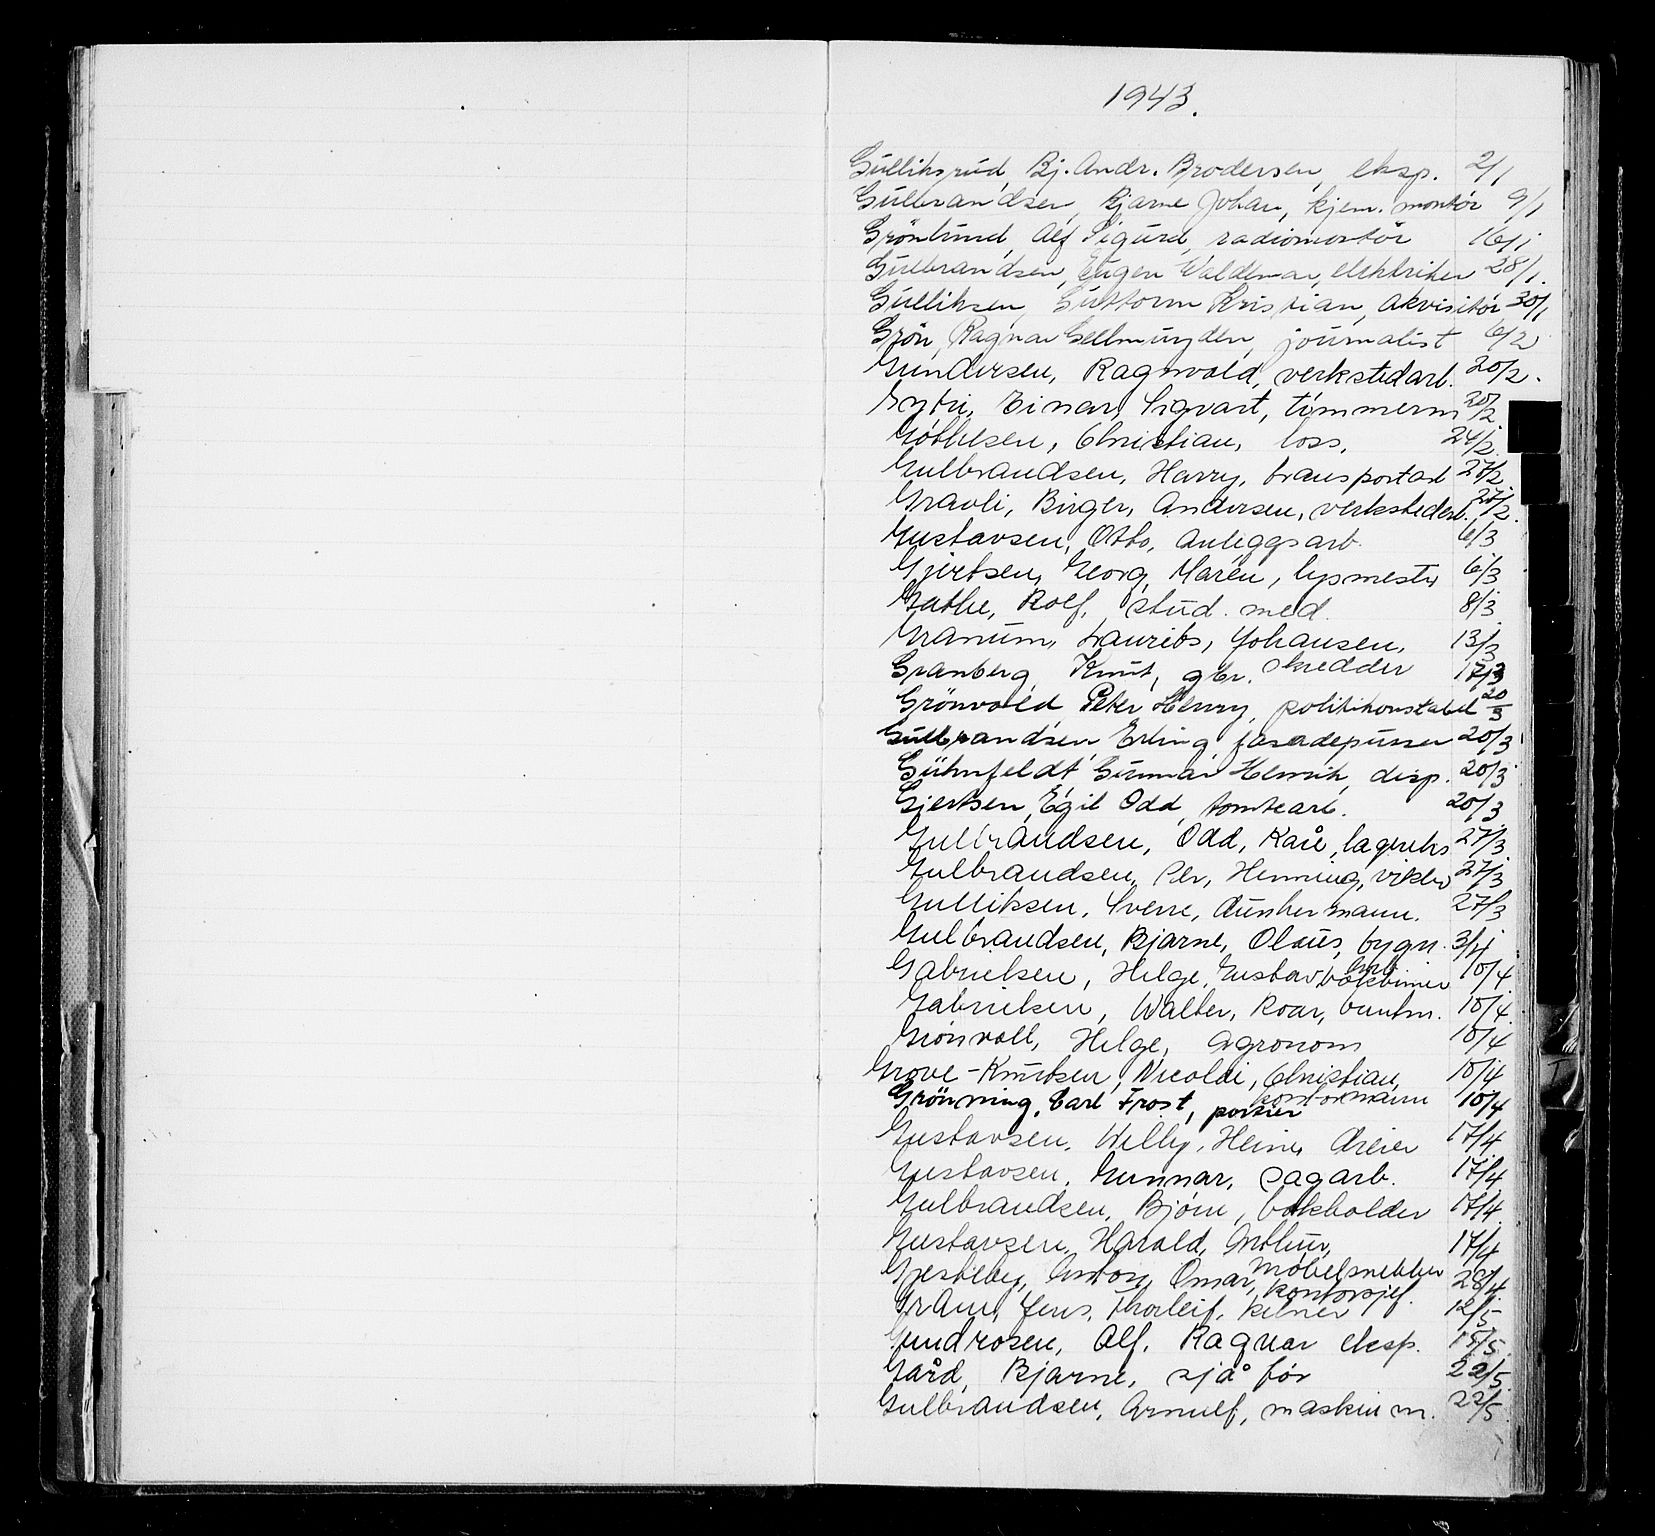 1943.
Gulliksrud, Bj. Andr. Brodersen, eksp. 2/1
Gulbrandsen, Bjarne Johan, kjem. montör 9/1
Grönlund, Alf Sigurd, radiomontör 16/1
Gulbrandsen, Eugen Waldemar, elektriker 28/1.
Gulliksen, Guttorm Kristian, akvisitör 30/1
Grön, Ragnar, journalist 6/2
Gundersen, Ragnvald, verkstedarb. 20/2.
Gytri, Einar, Sigvart, tömmerm 20/2
Christian, loss. 24/2
Gulbrandsen, Harry, transportarb 27/2
Gravli, Birger, Andersen, verkstedarb. 27/2.
Gustavsen, Otto, Anleggsarb. 6/3
Gjertsen, Georg, Maren, lysmester 6/3
Gathe, Rolf, stud. med. 8/3
Granum, Laurits, Johansen, 13/3
skredder
Granberg, Knut, gbr. 17/3
Grönvold Peter Henry, politikonstabel 20/3
Gulbrandsen Erling fasadepusser 20/3
Gühnfeldt Gunnar Henrik, disp. 20/3
Gjertsen, Egil Odd, tomtearb. 20/3
Gulbrandsen, Odd, Kåre, lagereks 27/3
Gulbrandsen, Per, Henning, 27/3
Gulliksen, Sverre, dunkermann. 27/3
Gulbrandsen, Bjarne, Olaus, bygn. 3/4
arb.
Gabrielsen, Helge, Gustav, bokbinder 10/4.
Gabrielsen, Walter, Roar, buntm. 10/4.
Grönvoll, Helge, Agronom 10/4
Grove-Knutsen, Nicolai, Christian, 10/4
kontormann
Grönning, Carl Frost, portier 10/4
Gustavsen, Willy, Heine, dreier 17/4
Gustavsen, Gunnar, sagarb. 17/4
Gulbrandsen, Bjørn, bokholder 17/4.
Gustavsen, Harald, Arthur, 17/4
Möbelsnekker
Gjesteby, Anton, Omar, kontorsjef. 28/4.
Gram, Jens, Thorleif, kelner 12/5
Gundrosen, Alf, Ragnar eksp. 15/5.
Gård, Bjarne, sjåfør 22/5.
Gulbrandsen, Arnulf, maskin m. 22/5.